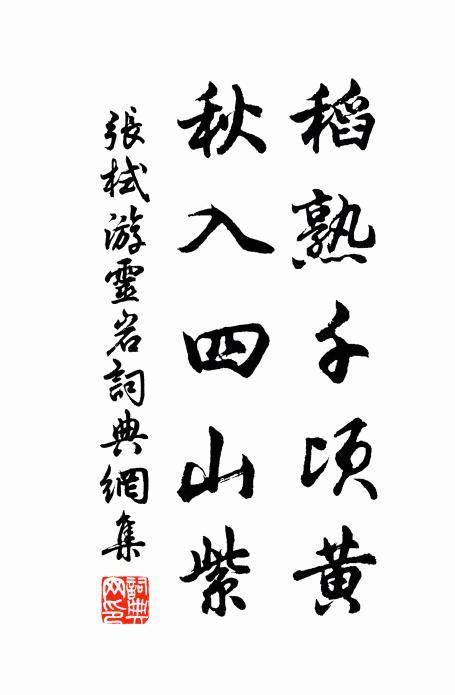 稻熟千頃黄
秋入四山紫
張栻游靈岩詞典網集
詞典網印